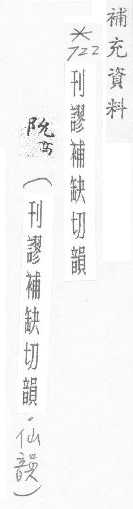 補充資料
*722 刊謬補缺切韻
阮(刊謬補缺切韻·仙韻)